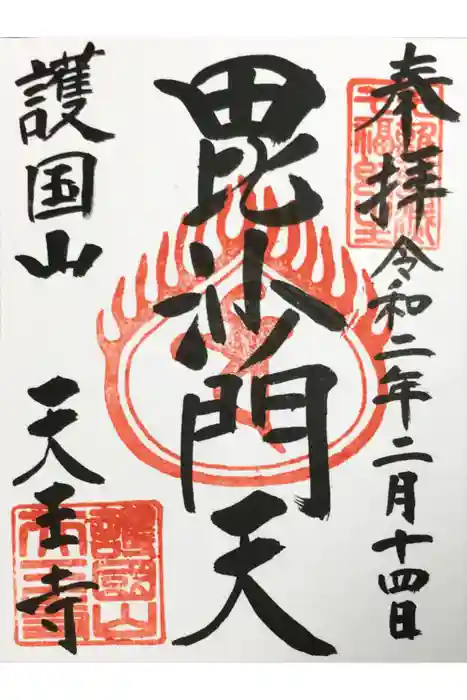 奉拝
令和二年二月十四日
毘沙門天
護国山
天王寺
護國山
天王寺